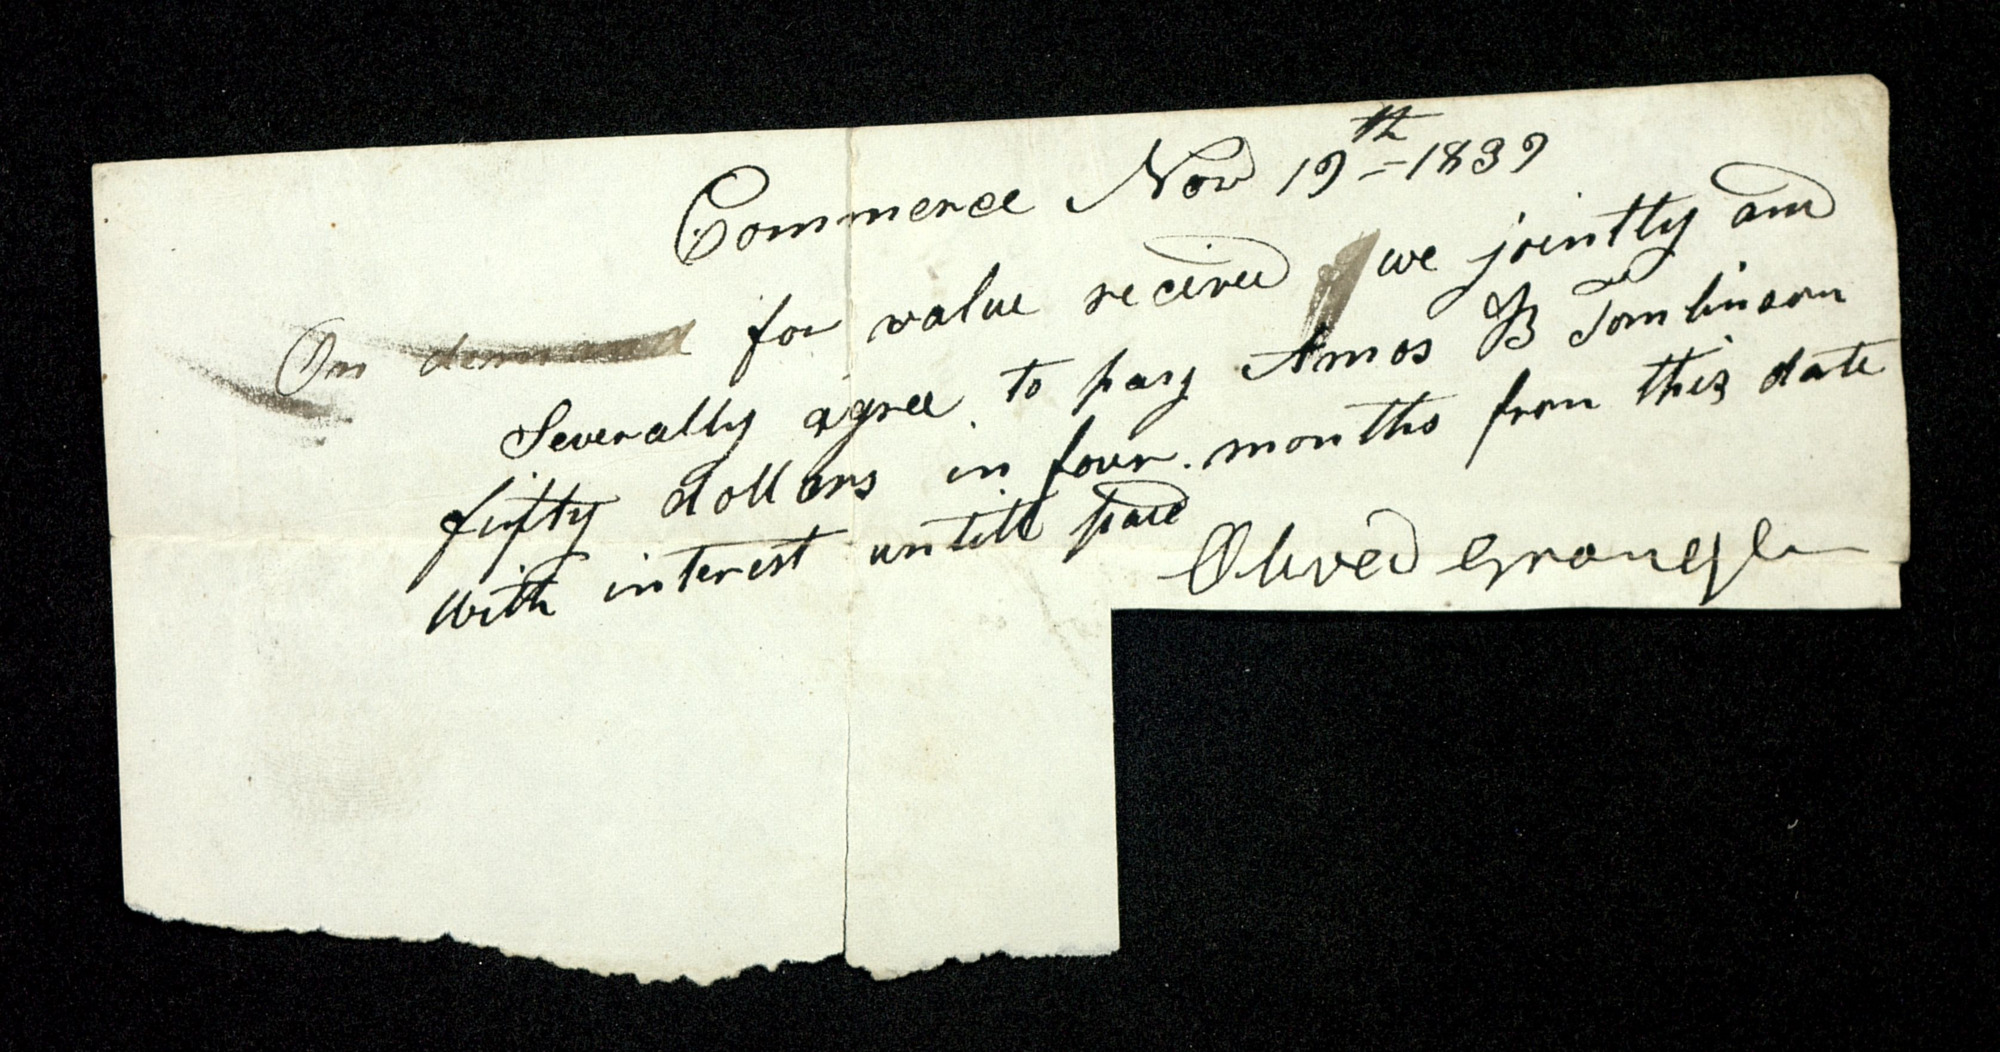 Commerce Nov 19th = 1839
On demand for value recived we jointly and
Severally agree to pay Amos B Tomlinson
fifty dollars in four months from this date
with interest untill paid
Oliver Granger